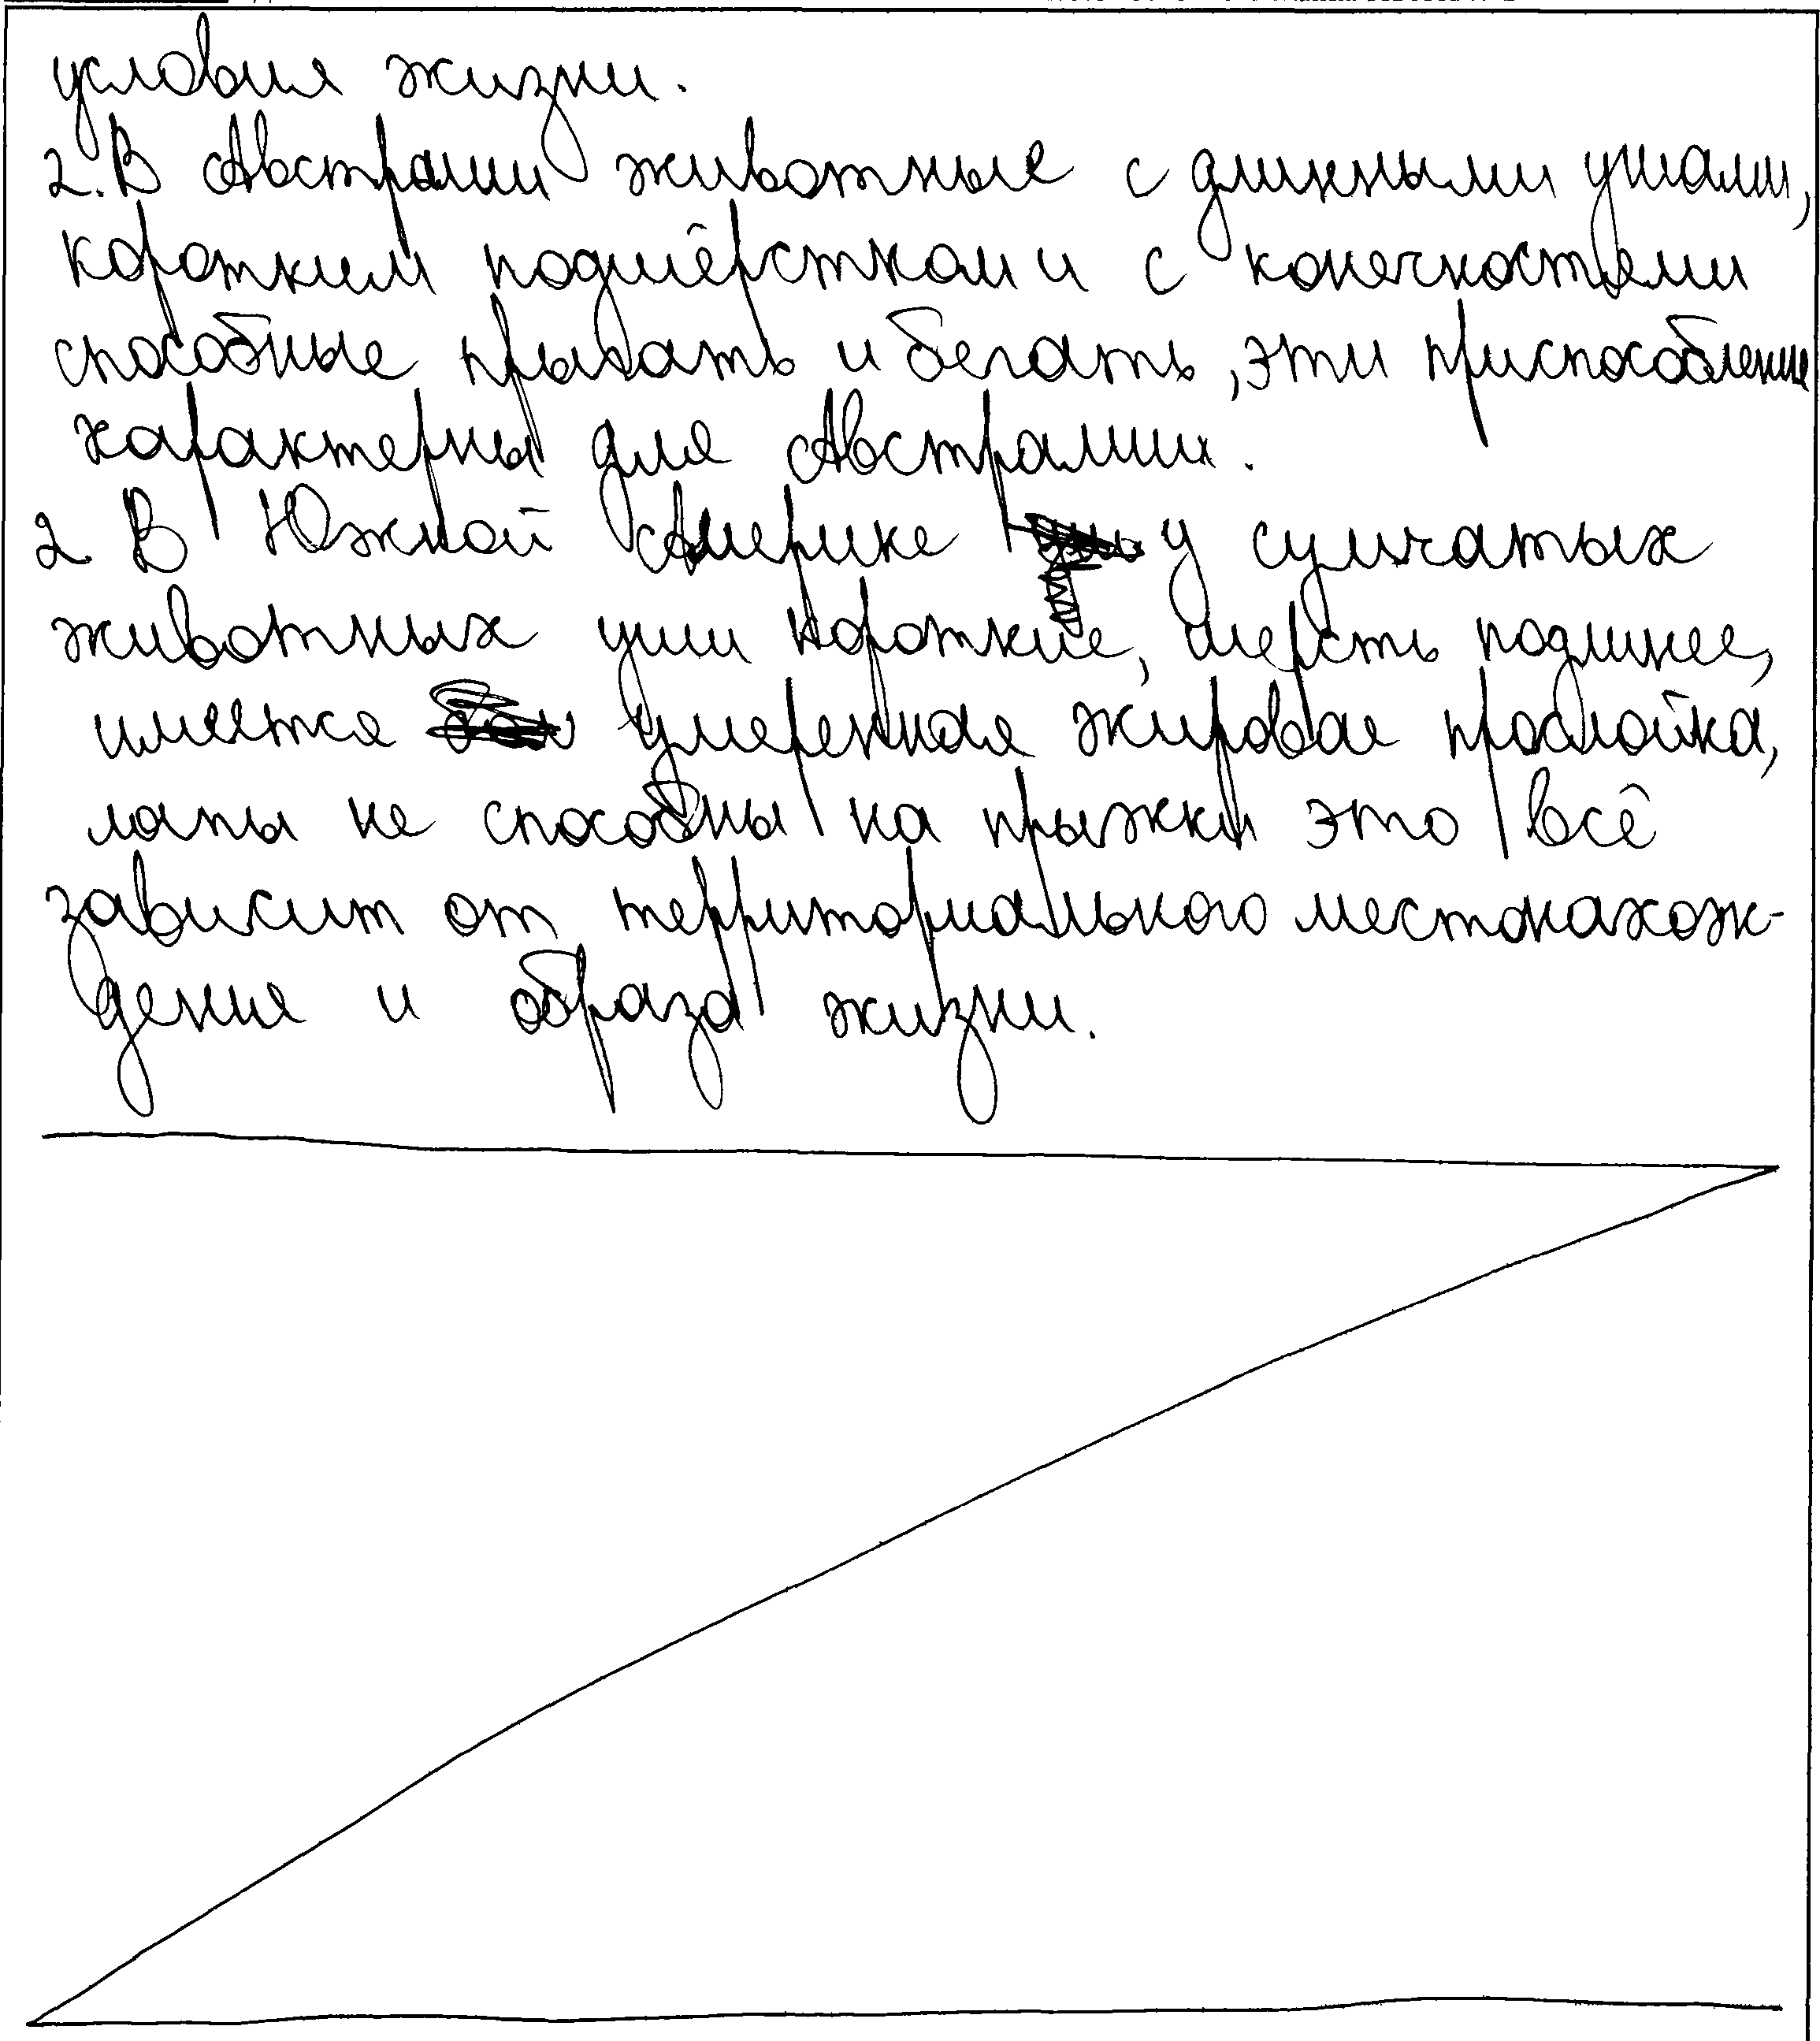 условия жизни.
2. В Австралии животные с длинными ушами,
коротким подшёрстком и с конечностями
способные прыгать и бегать, эти приспособление
характерны для Австралии.
2 В Южной Америке у сумчатых
животных уши короткие, шерсть подлинее,
имеятся умеренная жировая прослойка,
лапы не способны на прыжки это всё
зависит от территориального местонахож-
дения и образа жизни.